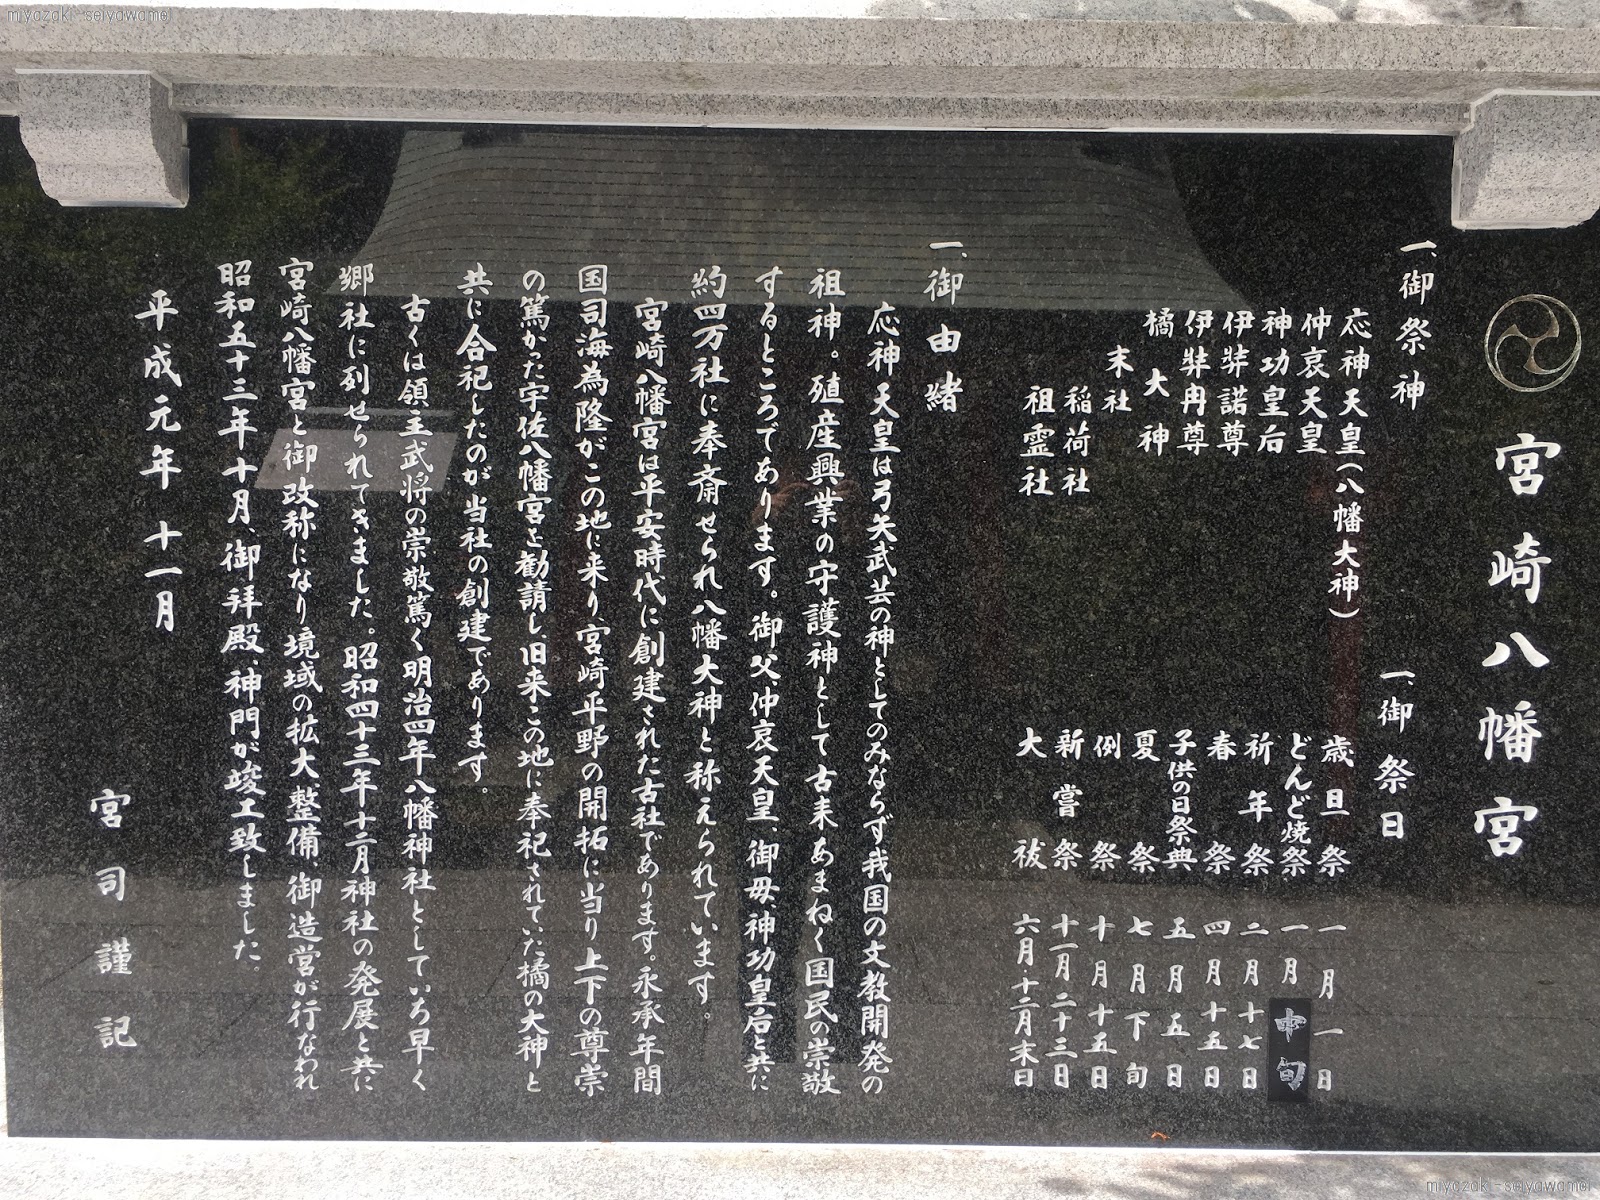 miyazaki-seiyawamei
宮崎八幡宮
一、御祭神
応神天皇(八幡大神)
仲哀天皇
神功皇后
伊弉諾尊
伊弉冉尊
橘大神
末社
稲荷社
祖霊社
一、御祭日
歳旦祭 一月一日
どんど焼祭 一月中旬
祈年祭 二月十七日
春祭 四月十五日
子供の日祭典 五月五日
夏祭 七月下旬
例祭 十月十五日
新嘗祭 十一月二十三日
大祓 六月・十二月末日
一、御由緒
応神天皇は弓矢武芸の神としてのみならず我国の文教開発の
祖神。殖産興業の守護神として古来あまねく国民の崇敬
するところであります。御父、仲哀天皇、御母、神功皇后と共に
約四万社に奉斎せられ八幡大神と称えられています。
宮崎八幡宮は平安時代に創建された古社であります。永承年間
国司海為隆がこの地に来り、宮崎平野の開拓に当り上下の尊崇
の篤かった宇佐八幡宮を勧請し、旧来この地に奉祀されていた橘の大神と
共に合祀したのが当社の創建であります。
古くは領主武将の崇敬篤く明治四年八幡神社としていち早く
郷社に列せられてきました。昭和四十三年十二月神社の発展と共に
宮崎八幡宮と御改称になり境域の拡大、整備、御造営が行なわれ
昭和五十三年十月、御拝殿、神門が竣工致しました。
平成元年十一月
宮司謹記
miyazaki-seiyawamei